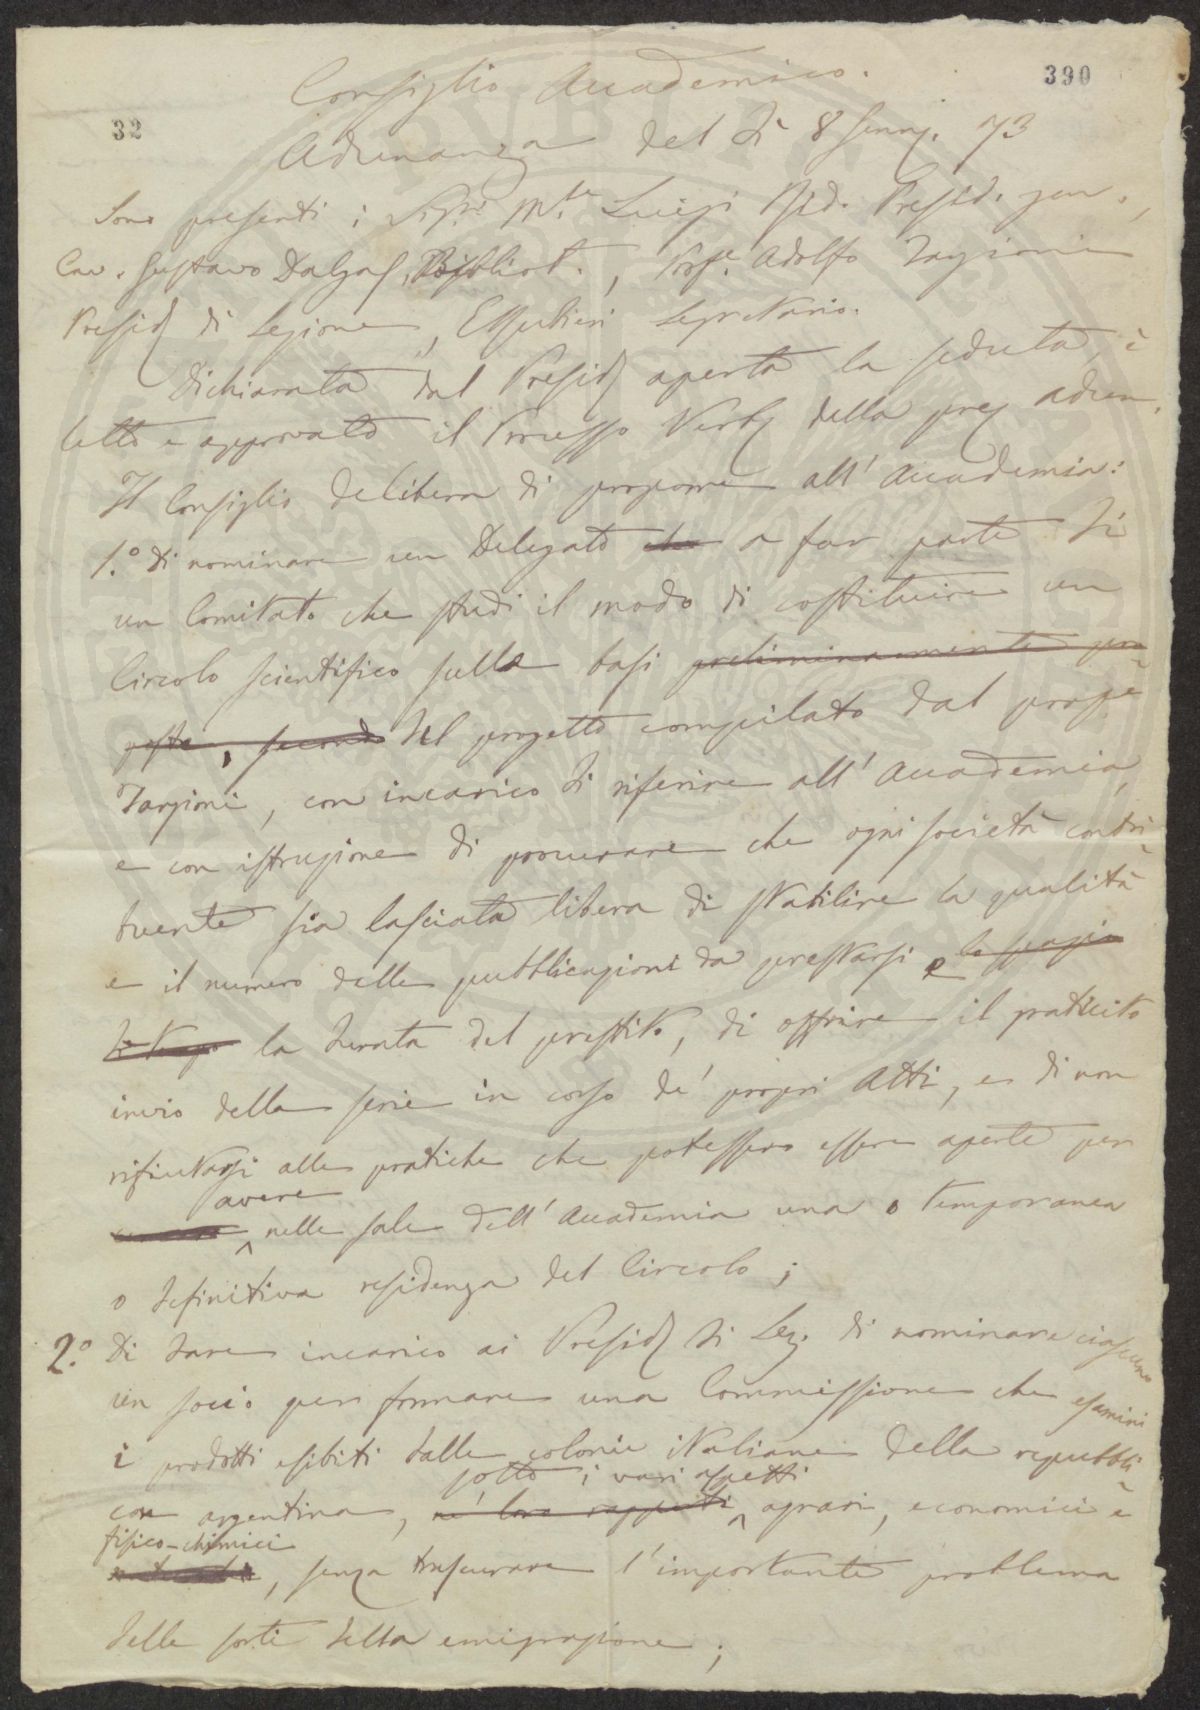 390
32
Consiglio Accademico.
Adunanza del dì 8 Genn. 73
Sono presenti i Sigri. Mse. Luigi Rid. Presid. gen.,
Cav. Gustavo Dalgas, Bibliot., Profe. Adolfo Targioni
Presid di Sezione, E Segretario.
Dichiarata dal Presid aperta la seduta, è
letto e approvato il Processo Verb della prec adun.
Il Consiglio delibera di proporre all' Accademia:
1.º Di nominare un Delegato che a far parte di
un Comitato che studi il modo di costituire un
Circolo scientifico sulle basi preliminarmente pro-
poste, secondo del progetto compilato dal profe
Targioni, con incarico di riferire all' Accademia,
e con istruzione di procurare che ogni società contri-
buente sia lasciata libera di stabilire la qualità
e il numero delle pubblicazioni da prestarsi e
la durata del prestito, di offrire il gratuito
invio della serie in corso de' propri Atti, e di non
rifiutarsi alle pratiche che potessero essere aperte per
avere
nelle sale dell' Accademia una o temporanea
o definitiva residenza del Circolo;
2.º Di dare incarico ai Presid di Sez. di nominare ciascuno
un socio per formare una Commissione che esamini
i prodotti esibiti dalle colonie italiane della repubbli-
sotto i vari aspetti
ca argentina, ne' loro rapporti agrari, economici e
fisico-chimici
, senza trascurare l'importante problema
delle sorti della emigrazione;